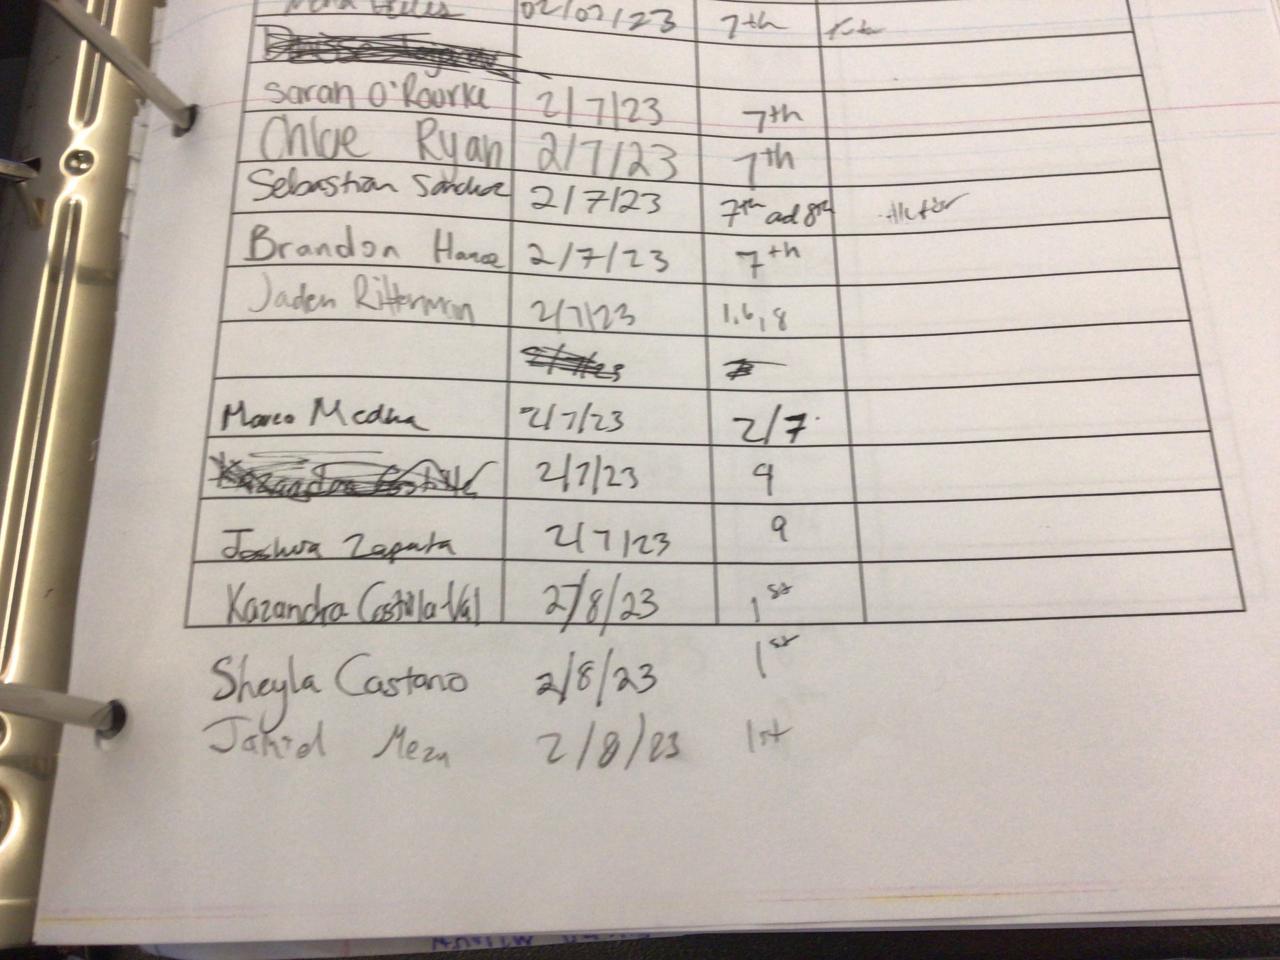 02/07/23 7th
Sarah O'Rourke 2/7/23 7th
Chloe Ryan 2/7/23 7th
Sebastian 2/7/23 7th ad 8th
Brandon 2/7/23 7th
Jaden Ritterman 2/7/23 1,6,8
Marco 2/7/23 2/7
2/7/23 9
Joshua Zapata 2/7/23 9
Kazandra Costilla-Val 2/8/23 1st
Sheyla Castano 2/8/23 1st
Jahid Meza 2/8/23 1st